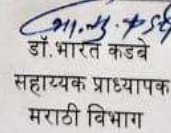 डॉ.भारत कडबे
सहाय्यक प्राध्यापक
मराठी विभाग